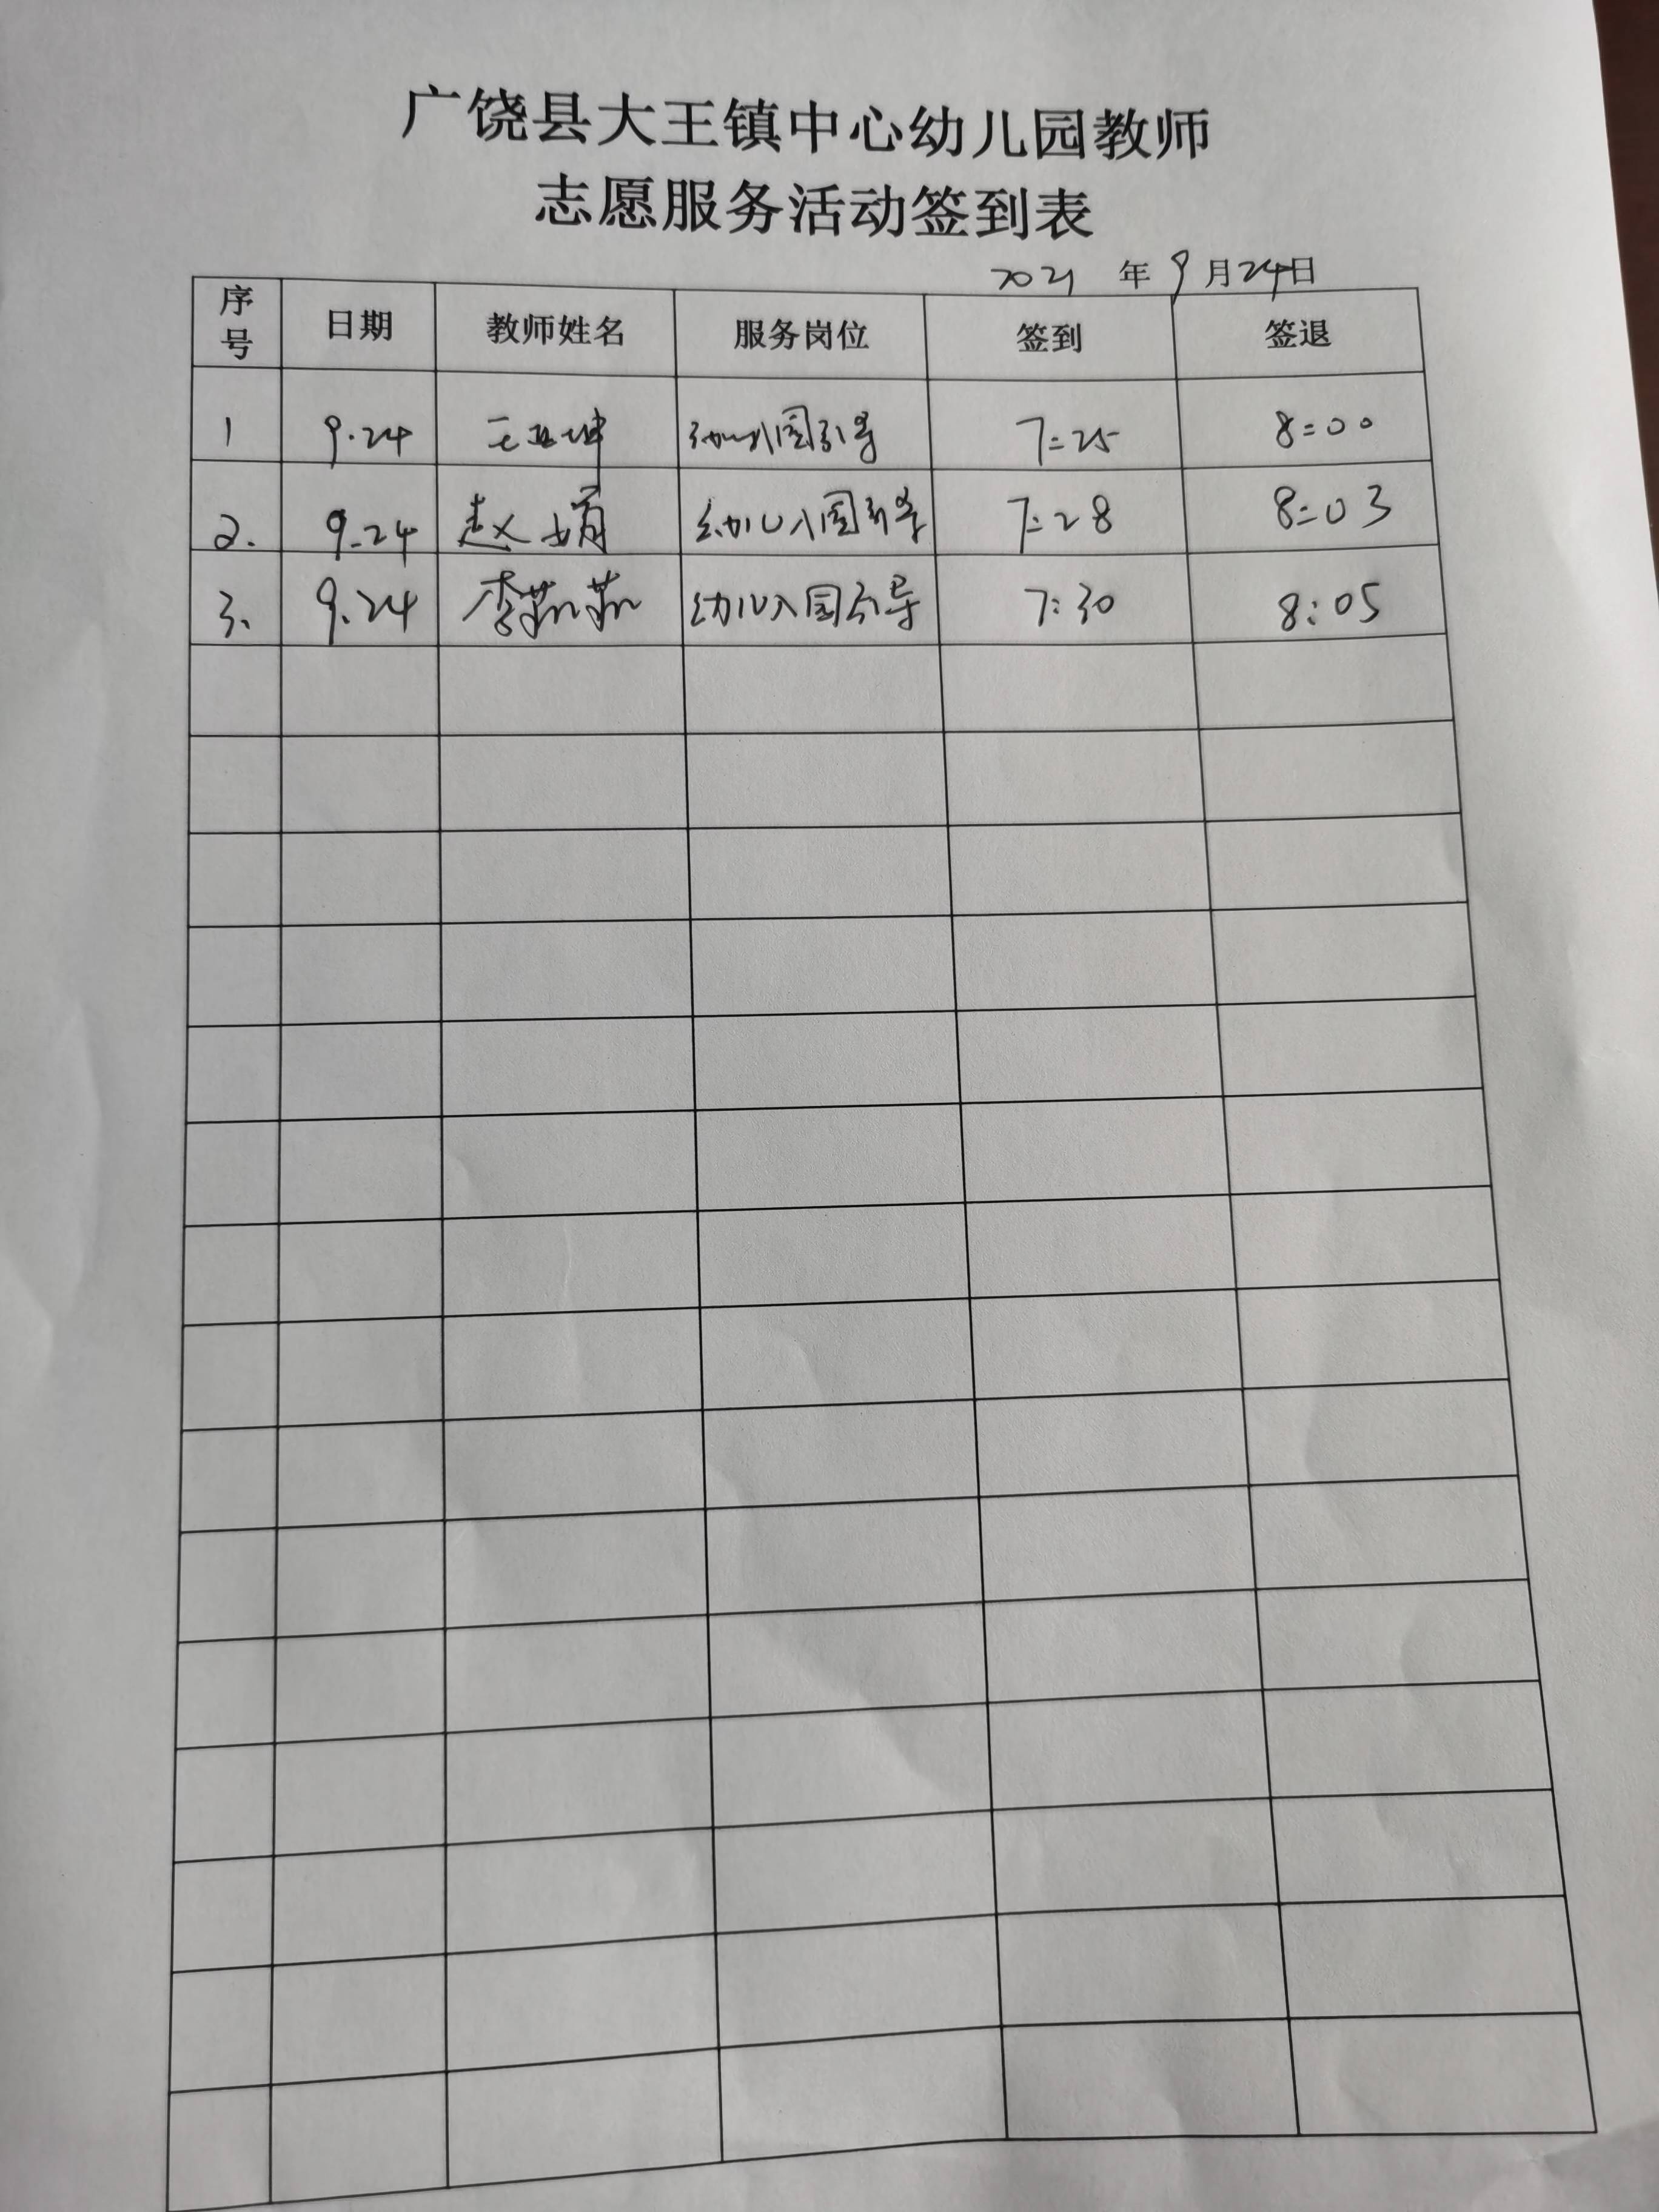 广饶县大王镇中心幼儿园教师
志愿服务活动签到表
2021 年 9 月 24 日
序号 日期 教师姓名 服务岗位 签到 签退
1 9.24 王亚坤 幼儿入园引导 7:25 8:00
2. 9.24 赵娟 幼儿入园引导 7:28 8:03
3. 9.24 李 幼儿入园引导 7:30 8:05